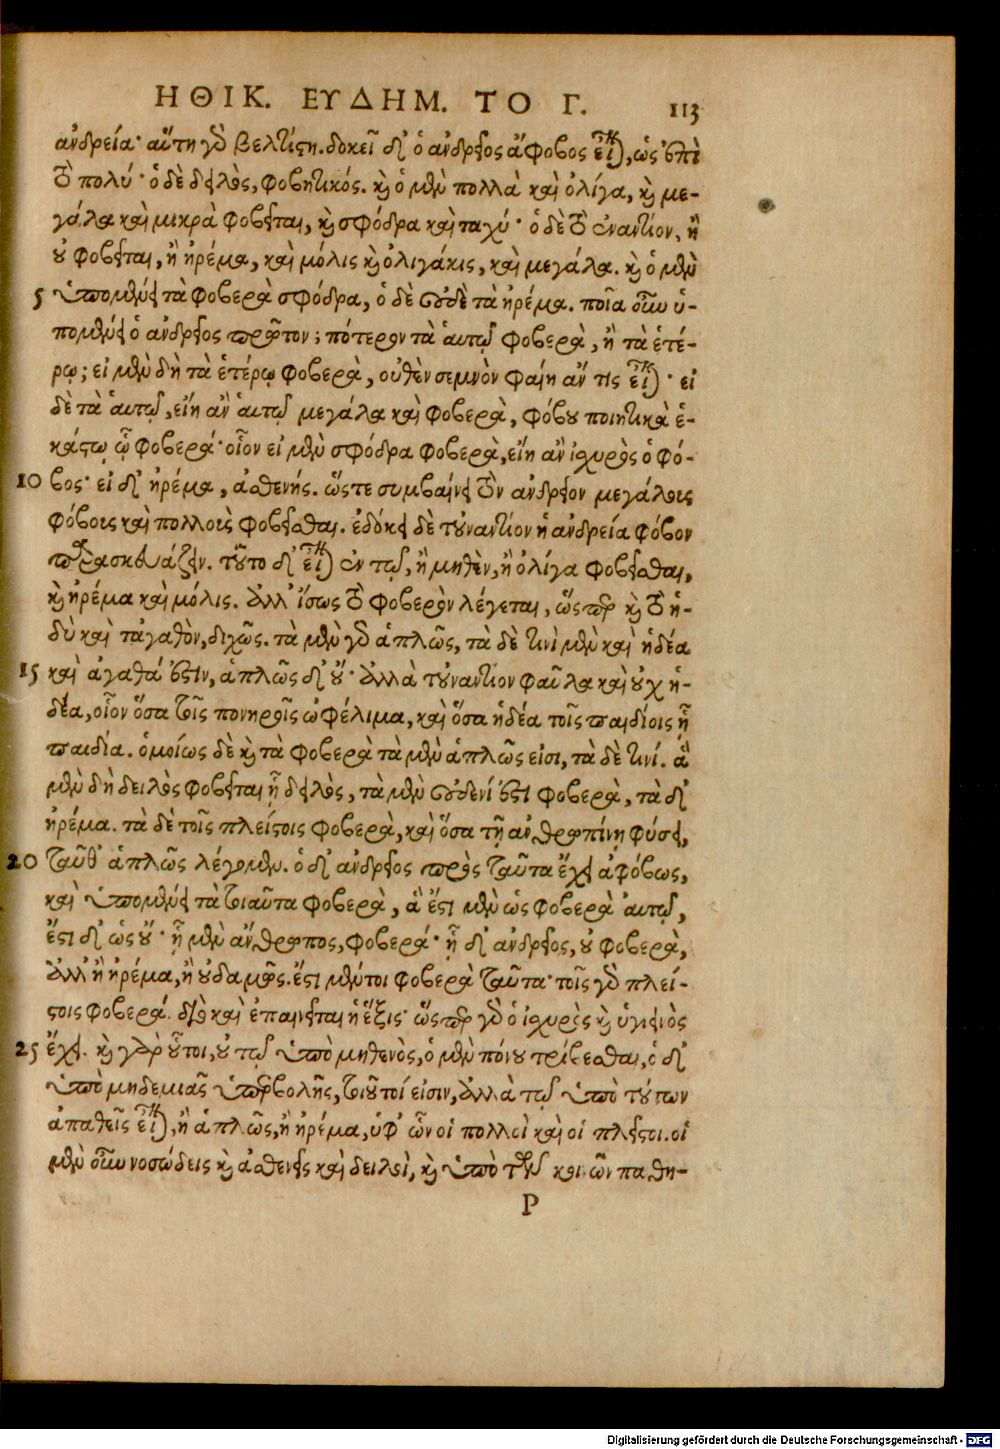 ΗΘΙΚ. ΕΥΔΗΜ. ΤΟ Γ. 113
ἀνδρεία· αὕτη γὸ βελτίςη. δοκεῖ δ' ὁ ἀνδρεῖος ἄφοβος εἶναι, ὡς ἐπὶ
τὸ πολύ· ὁ δὲ δειλὸς, φοβητικός. καὶ ὁ μὲν πολλὰ καὶ ὀλίγα, καὶ με-
γάλα καὶ μικρὰ φοβεῖται, καὶ σφόδρα καὶ ταχύ· ὁ δὲ τὸ ἐναντίον, ἢ
οὐ φοβεῖται, ἢ ἠρέμα, καὶ μόλις καὶ ὀλιγάκις, καὶ μεγάλα. καὶ ὁ μὲν
5 ὑπομένει τὰ φοβερὰ σφόδρα, ὁ δὲ οὐδὲ τὰ ἠρέμα. ποῖα οὖν ὑ-
πομένει ὁ ἀνδρεῖος πρῶτον; πότερον τὰ ἑαυτῷ φοβερὰ, ἢ τὰ ἑτέ-
ρῳ; εἰ μὲν δὴ τὰ ἑτέρῳ φοβερὰ, οὐθὲν σεμνὸν φαίη ἄν τις εἶναι· εἰ
δὲ τὰ ἑαυτῷ, εἴη ἂν ἑαυτῷ μεγάλα καὶ φοβερὰ, φόβου ποιητικὰ ἑ-
κάςῳ ᾧ φοβερά· οἷον εἰ μὲν σφόδρα φοβερὰ, εἴη ἂν ἰσχυρὸς ὁ φό-
10 βος· εἰ δ' ἠρέμα, ἀσθενής. ὥςτε συμβαίνει τὸν ἀνδρεῖον μεγάλους
φόβοις καὶ πολλοὺς φοβεῖσθαι. ἐδόκει δὲ τοὐναντίον ἡ ἀνδρεία φόβον
παρασκευάζειν. τοῦτο δ' εἶναι ἐν τῷ, ἢ μηθὲν, ἢ ὀλίγα φοβεῖσθαι,
καὶ ἠρέμα καὶ μόλις. ἀλλ' ἴσως τὸ φοβερὸν λέγεται, ὥςπερ καὶ τὸ ἡ-
δὺ καὶ τἀγαθὸν, διχῶς. τὰ μὲν γὸ ἁπλῶς, τὰ δὲ τινὶ μὲν καὶ ἡδέα
15 καὶ ἀγαθά ἐςτιν, ἁπλῶς δ' οὔ· ἀλλὰ τοὐναντίον φαῦλα καὶ οὐχ ἡ-
δέα, οἷον ὅσα τοῖς πονηροῖς ὠφέλιμα, καὶ ὅσα ἡδέα τοῖς παιδίοις ᾗ
παιδία. ὁμοίως δὲ καὶ τὰ φοβερὰ τὰ μὲν ἁπλῶς εἰσι, τὰ δὲ τινί. ἃ
μὲν δὴ δειλὸς φοβεῖται ᾗ δειλὸς, τὰ μὲν οὐδενί ἐςι φοβερὰ, τὰ δ'
ἠρέμα. τὰ δὲ τοῖς πλείςοις φοβερὰ, καὶ ὅσα τῇ ἀνθρωπίνῃ φύσει,
20 ταῦθ' ἁπλῶς λέγομεν. ὁ δ' ἀνδρεῖος πρὸς ταῦτα ἔχει ἀφόβως,
καὶ ὑπομένει τὰ τοιαῦτα φοβερὰ, ἃ ἔςι μὲν ὡς φοβερὰ αὐτῷ,
ἔςι δ' ὡς οὔ· ᾗ μὲν ἄνθρωπος, φοβερά· ᾗ δ' ἀνδρεῖος, οὐ φοβερὰ,
ἀλλ' ἢ ἠρέμα, ἢ οὐδαμῶς. ἔςι μέντοι φοβερὰ ταῦτα· τοῖς γὸ πλεί-
ςοις φοβερά. διὸ καὶ ἐπαινεῖται ἡ ἕξις· ὥςπερ γὸ ὁ ἰσχυρὸς καὶ ὑγιεινὸς
25 ἔχει. καὶ γὰρ οὗτοι, οὐ τῷ ὑπὸ μηθενὸς, ὁ μὲν πόνου τρίβεσθαι, ὁ δ'
ὑπὸ μηδεμιᾶς ὑπερβολῆς, τοιοῦτοί εἰσιν, ἀλλὰ τῷ ὑπὸ τούτων
ἀπαθεῖς εἶναι, ἢ ἁπλῶς, ἢ ἠρέμα, ὑφ' ὧν οἱ πολλοὶ καὶ οἱ πλεῖςοι. οἱ
μὲν οὖν νοσώδεις καὶ ἀσθενεῖς καὶ δειλοὶ, καὶ ὑπὸ τῶν κοινῶν παθη-
P
Digitalisierung gefördert durch die Deutsche Forschungsgemeinschaft - DFG